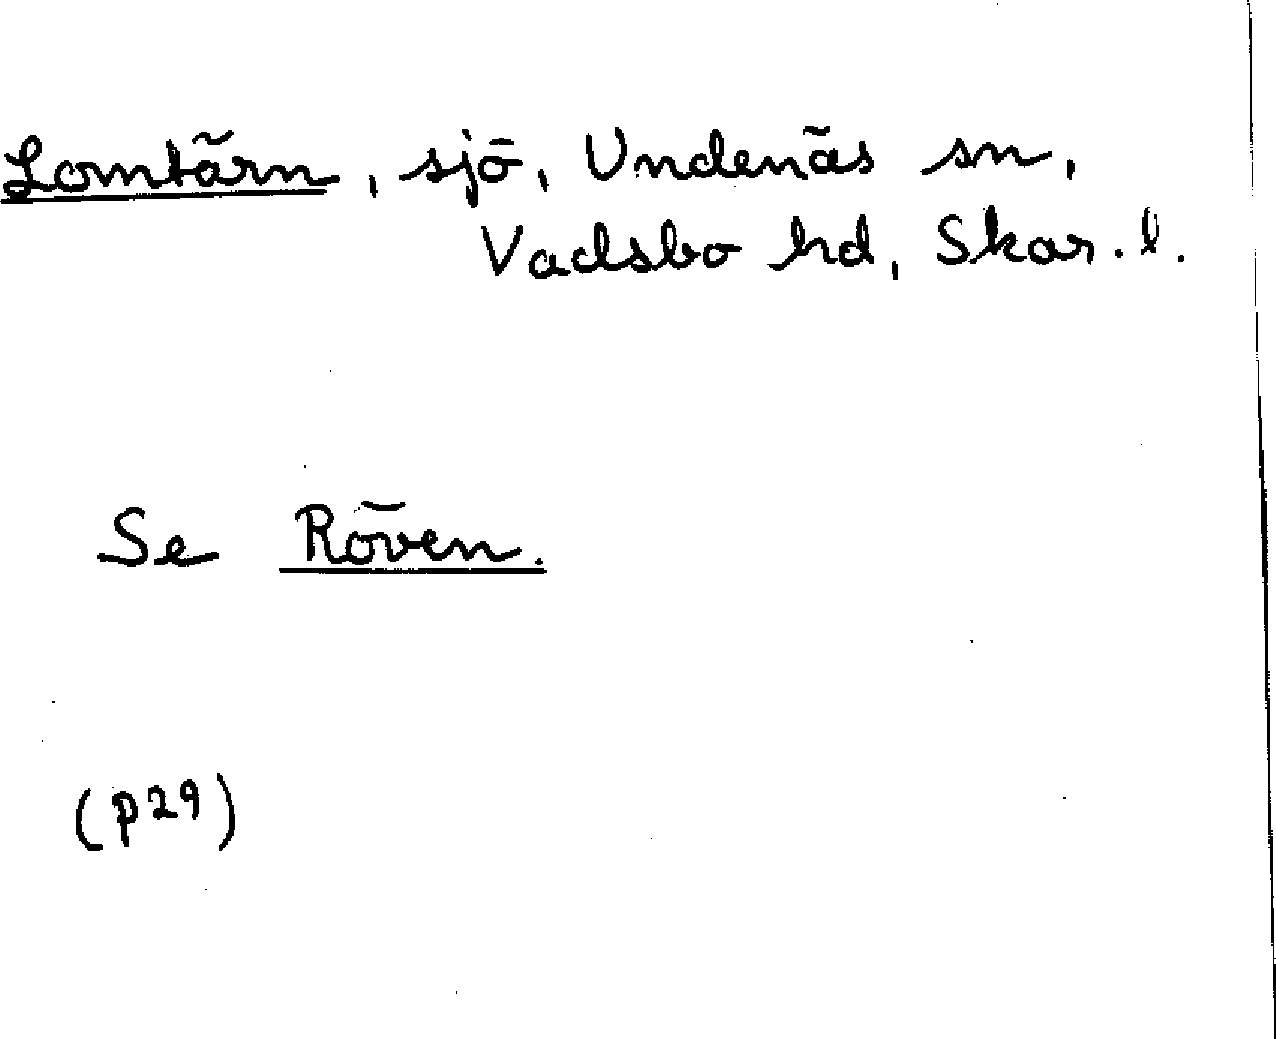 Lomtärn, sjö, Undenäs sn,
Vadsbo hd, Skar. l.
Se Röven.
(p29)